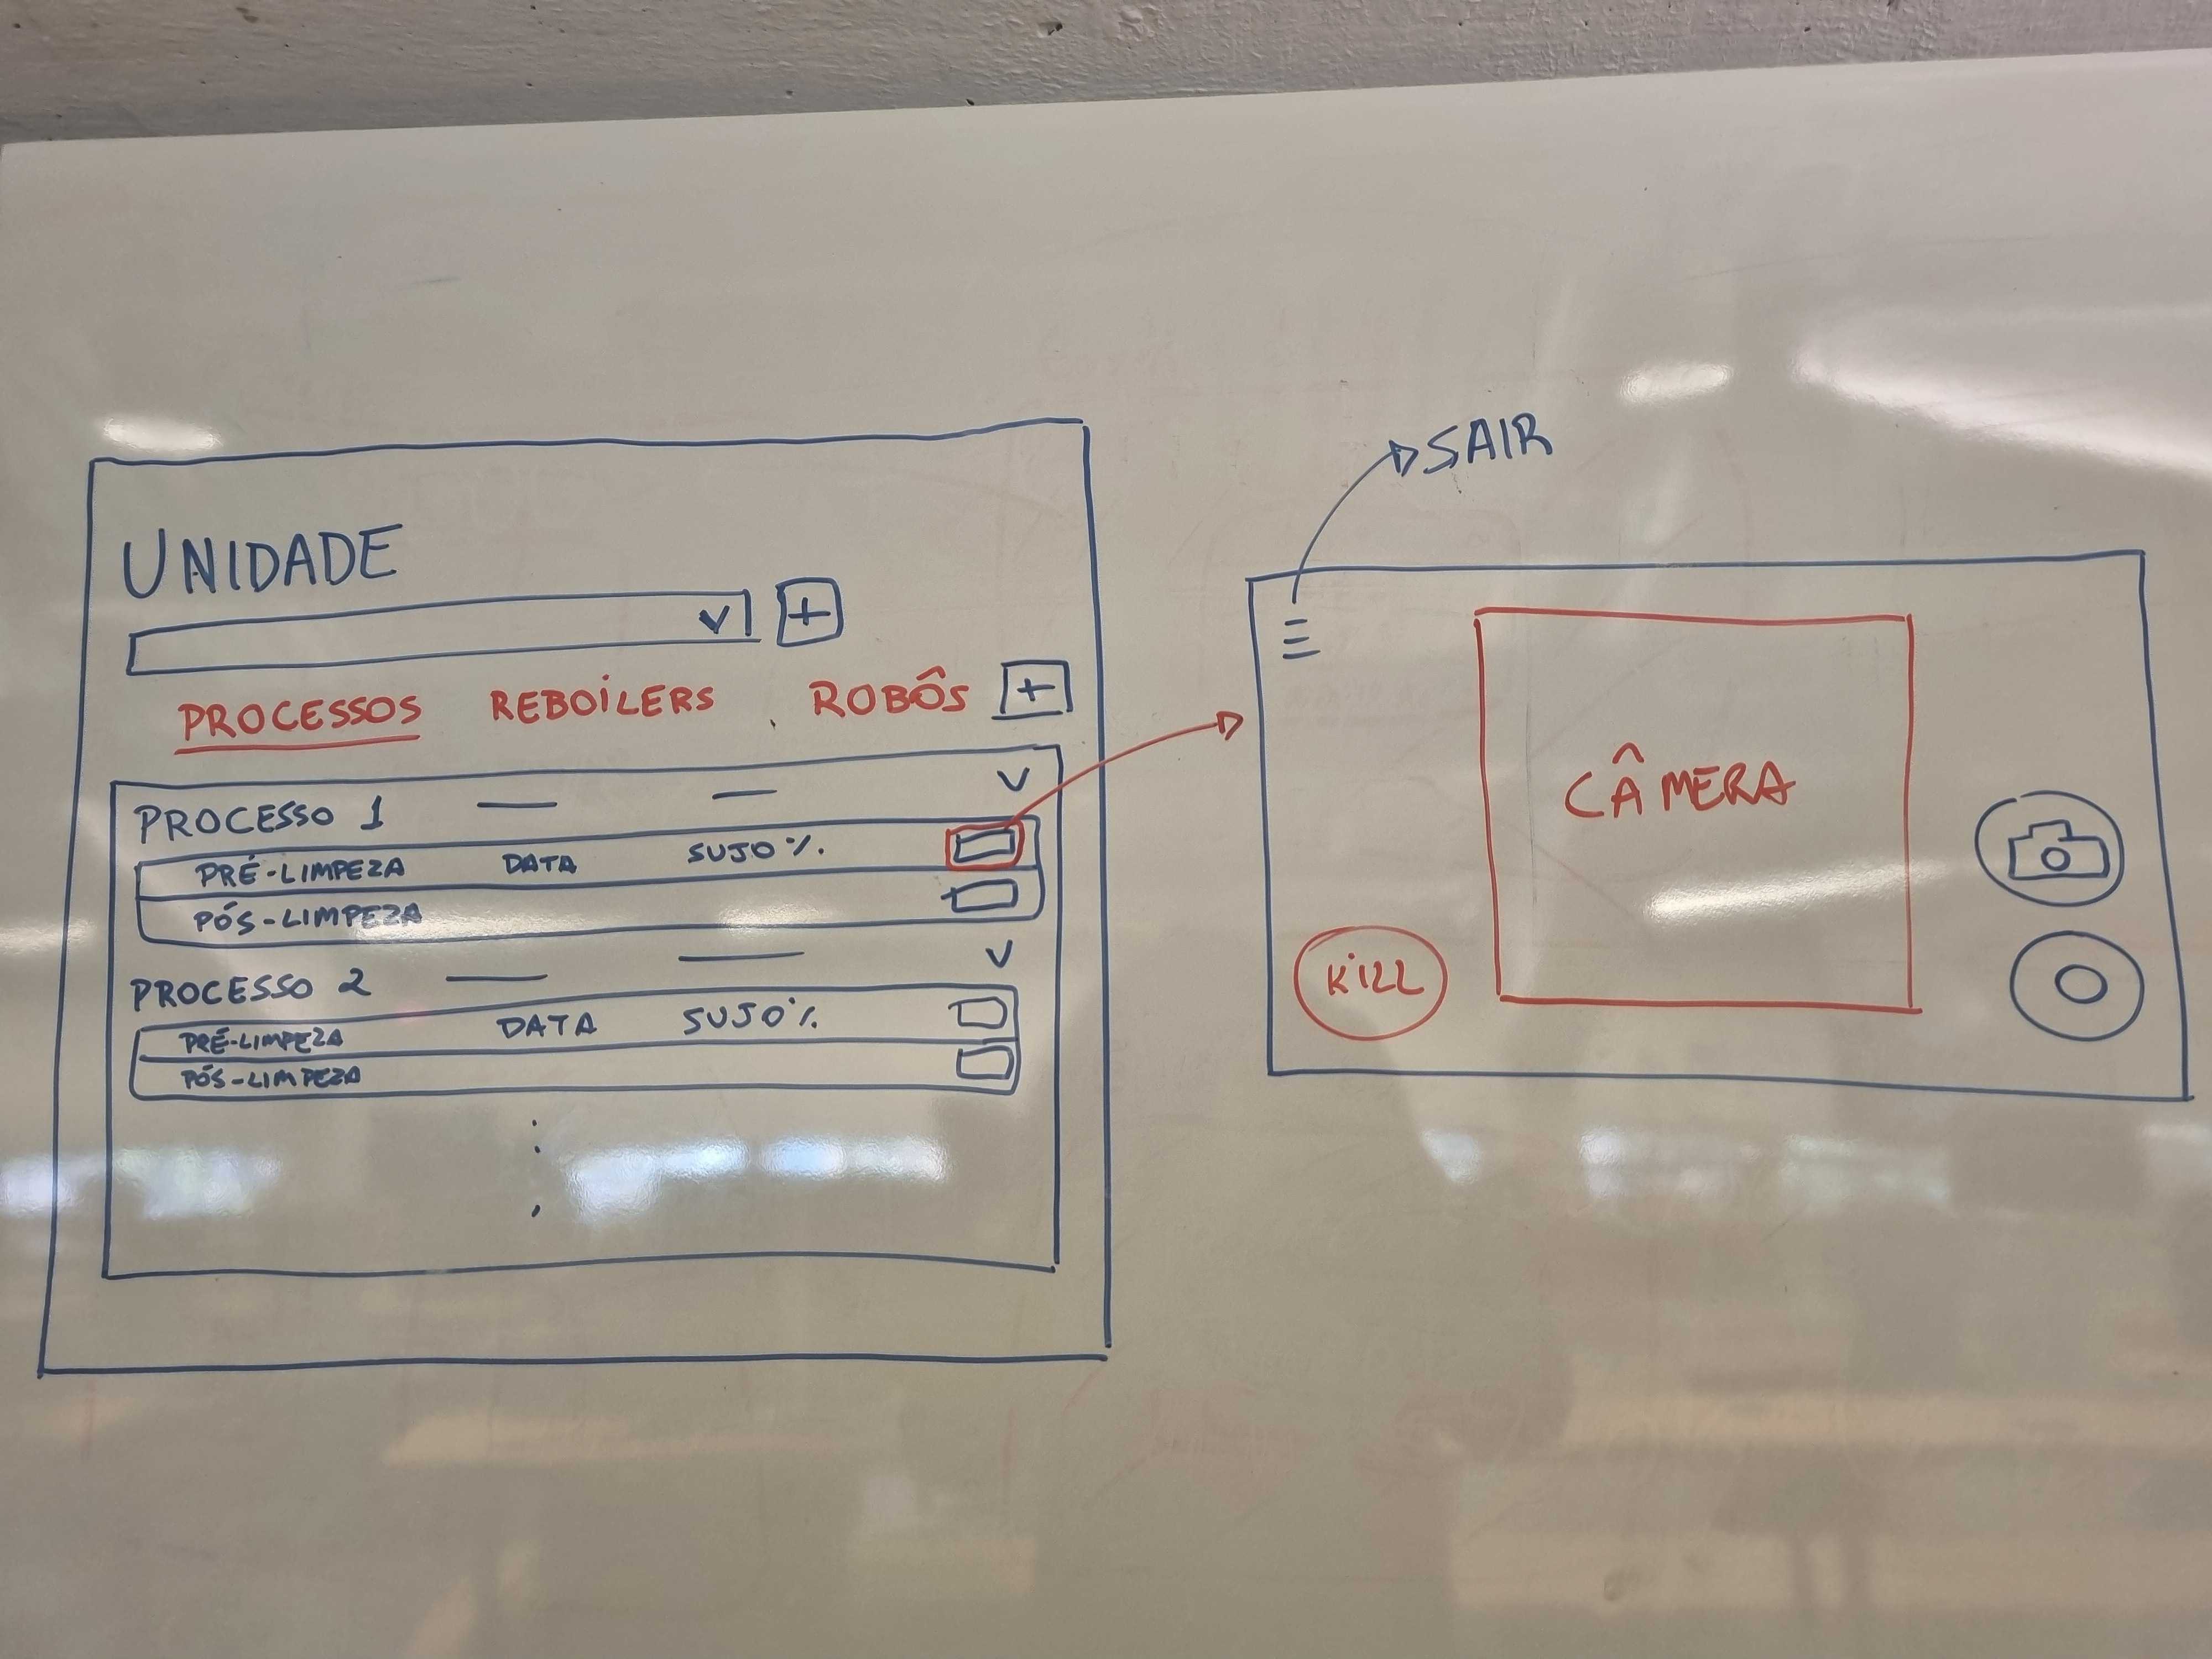 UNIDADE
+
PROCESSOS REBOILERS ROBÔS +
PROCESSO 1
PRÉ-LIMPEZA DATA SUJO %
PÓS-LIMPEZA
PROCESSO 2
PRÉ-LIMPEZA DATA SUJO %
PÓS-LIMPEZA
SAIR
CÂMERA
KILL